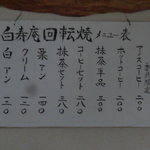 白寿庵回転焼 メニュー表
アイスコーヒー 二〇〇
ホットコーヒー 二〇〇
抹茶単品 三〇〇
コーヒーセット 二八〇
抹茶セット 三八〇
栗アン 一四〇
クリーム 一三〇
白アン 一二〇